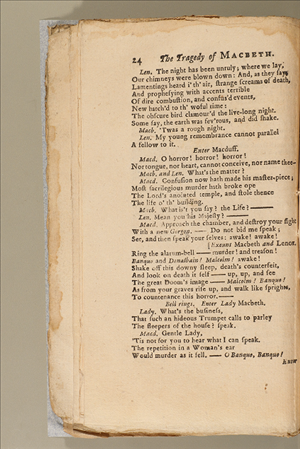 24 The Tragedy of MACBETH.
Len. The night has been unruly; where we lay,
Our chimneys were blown down: And, as they say,
Lamentings heard i' th' air, strange screams of death,
And prophesying with accents terrible
Of dire combustion, and confus'd events,
New hatch'd to th' woful time:
The obscure bird clamour'd the live-long night.
Some say, the earth was fev'rous, and did shake.
Macb. 'Twas a rough night.
Len. My young remembrance cannot parallel
A fellow to it.
Enter Macduff.
Macd. O horror! horror! horror!
Nor tongue, nor heart, cannot conceive, nor name thee—
Macb. and Len. What's the matter?
Macd. Confusion now hath made his master-piece;
Most sacrilegious murder hath broke ope
The Lord's anointed temple, and stole thence
The life o' th' building.
Macb. What is't you say? the Life?——
Len. Mean you his Majesty?
Macd. Approach the chamber, and destroy your sight
With a new Gorgon.—— Do not bid me speak;
See, and then speak your selves: awake! awake!
[Exeunt Macbeth and Lenox.
Ring the alarum-bell —— murder! and treason!
Banquo and Donalbain! Malcolm! awake!
Shake off this downy sleep, death's counterfeit,
And look on death it self —— up, up, and see
The great Doom's image —— Malcolm! Banquo!
As from your graves rise up, and walk like sprights,
To countenance this horror.——
Bell rings. Enter Lady Macbeth.
Lady. What's the business,
That such an hideous Trumpet calls to parley
The sleepers of the house? speak.
Macd. Gentle Lady,
'Tis not for you to hear what I can speak.
The repetition in a Woman's ear
Would murder as it fell. —— O Banquo, Banquo!